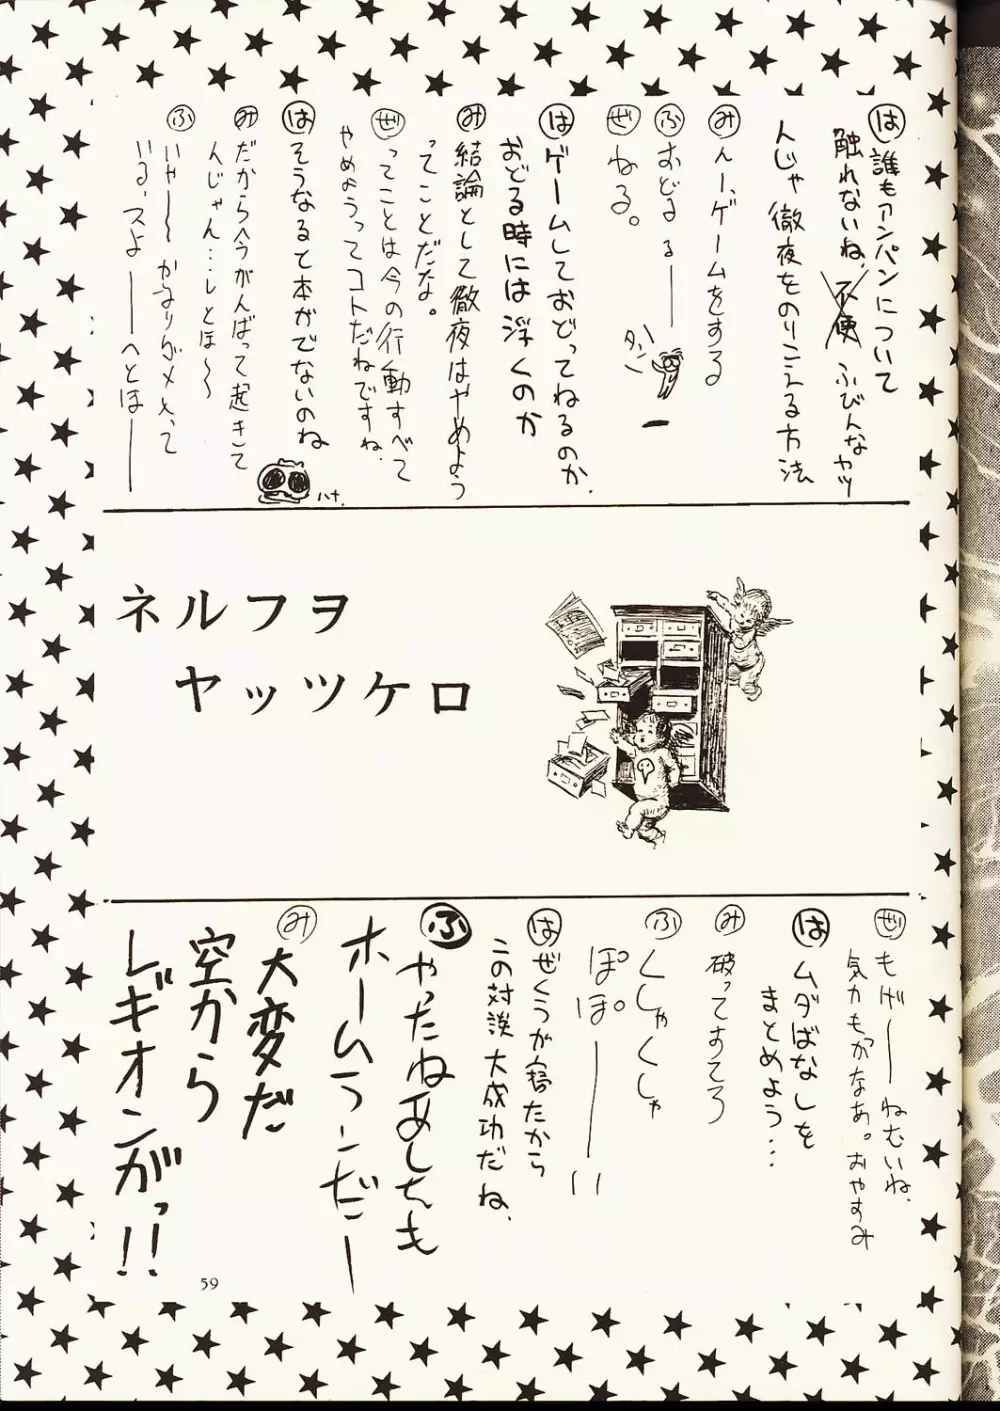 は 誰もアンパンについて
触れないね、不便 ふびんなヤツ
んじゃ 徹夜をのりこえる方法
み んー、ゲームをする
ふ おどるるー
タッ
ぜ ねる。
は ゲームしておどってねるのか、
おどる時には浮くのか
み 結論として徹夜はやめよう
ってことだな。
ぜ ってことは今の行動すべて
やめようってコトだねですね、
は そうなると本がでないのね
ハナ
み だから今がんばって起きて
んじゃん…しとほ〜〜
ふ いやー〜 かなりダメ入って
いる、スよ ー へとほー
ネルフヲ
ヤッツケロ
ぜ もげーーねむいね、
気力もっかなあ。おやすみ
は ムダばなしを
まとめよう…
み 破ってすてろ
ふ くしゃくしゃ
ぽぽーーい
は ぜくうが寝たから
この対談大成功だね、
ふ やったねあしたも
ホームランだー
み 大変だ
空から
レギオンがっ!!
59